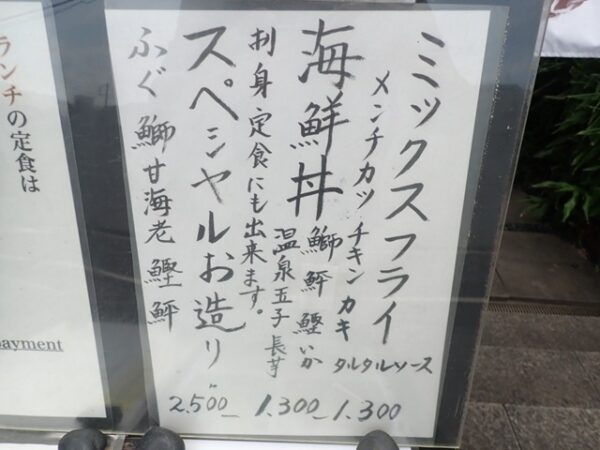 ミックスフライ
メンチカツ チキン カキ
タルタルソース
1.300
海鮮丼 鰤 鮃 鰹 いか
温泉玉子 長芋
刺身定食にも出来ます。
1.300
スペシャルお造り
2.500
ふぐ 鰤 甘海老 鰹 鮃
ランチの定食は
payment